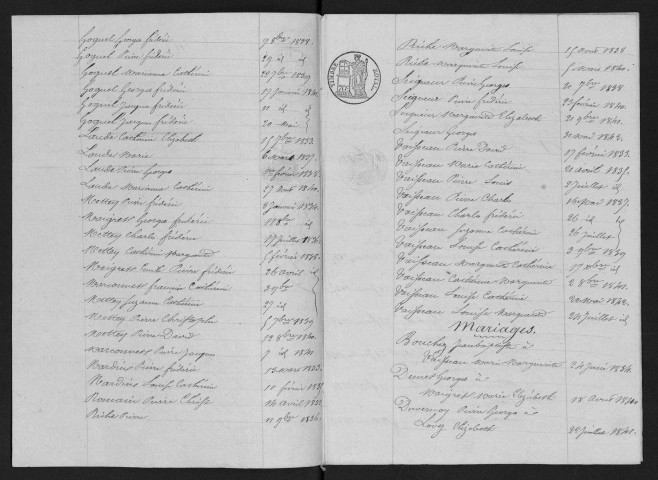 Goguel George frédéric 9 8bre 1838.
Goguel Pierre frédéric 29 id id
Goguel Marianne Cathérine 29 9bre 1839
Goguel Georges frédéric 17 Janvier 1840.
Goguel Jacques frédéric 11 id
Goguel Jacques frédéric 20 mai
Laude Cathérine Elizabeth 15 7bre 1833.
Laude Marie 6 mars 1837.
Laude Pierre Georges février 1838.
Laude Marianne Cathérine 27 aout 1840.
Mettey Pierre frédéric 8 Janvier 1834.
Maigret George frédéric 11 8bre id
Mettey Charles frédéric 17 Juillet 1836.
Mettey Cathérine Marguerite 5 février 1838.
Maigret Emile Pierre frédéric 26 avril id
Marconnet francois Cathérine 2 9bre
Mettey Suzanne Cathérine 27 id
Mettey Pierre Christophe 5 7bre 1839
Mettey Pierre David 12 8bre 1840.
Marconnet Pierre Jacques 7 id 1841
Nardin Pierre frédéric 13 mars 1833.
Nardin Louise Cathérine 11 février
Romain Pierre Christ 16 avril
Riche Pierre 11 9bre 1836.
TIMBRE ROYAL
Riche Marguerite Louise 15 Aout 1838
Riche Marguerite Louise 5 mars 1840.
Seigneur Pierre Georges 20 7bre 1838
Seigneur Pierre frédéric 23 février 1840.
Seigneur Marguerite Elizabeth 21 9bre 1841.
Seigneur Georges 20 mai 1842.
Vaisseau Pierre David 17 février 1833.
Vaisseau Marie Cathérine 20 avril 1835.
Vaisseau Pierre Louis 2 Juillet id
Vaisseau Pierre Charles 16 mai 1837.
Vaisseau Charles frédéric 26 id id
Vaisseau Suzanne Cathérine 26 Juillet
Vaisseau Louise Cathérine 3 9bre 1839
Vaisseau Marguerite Cathérine 17 id
Vaisseau Cathérine Marguerite 2 8bre 1841.
Vaisseau Louise Cathérine 20 mai 1842.
Vaisseau Louise Marguerite 24 Juillet id
Mariages.
Bouchez Jeanbaptiste à
Vaisseau Marie Marguerite 24 Juin 1834.
Demet Georges à
Maigret Marie Elizabeth 18 avril 1840
Duvernoy Pierre George à
Lovy Elizabeth 22 Juillet 1841.